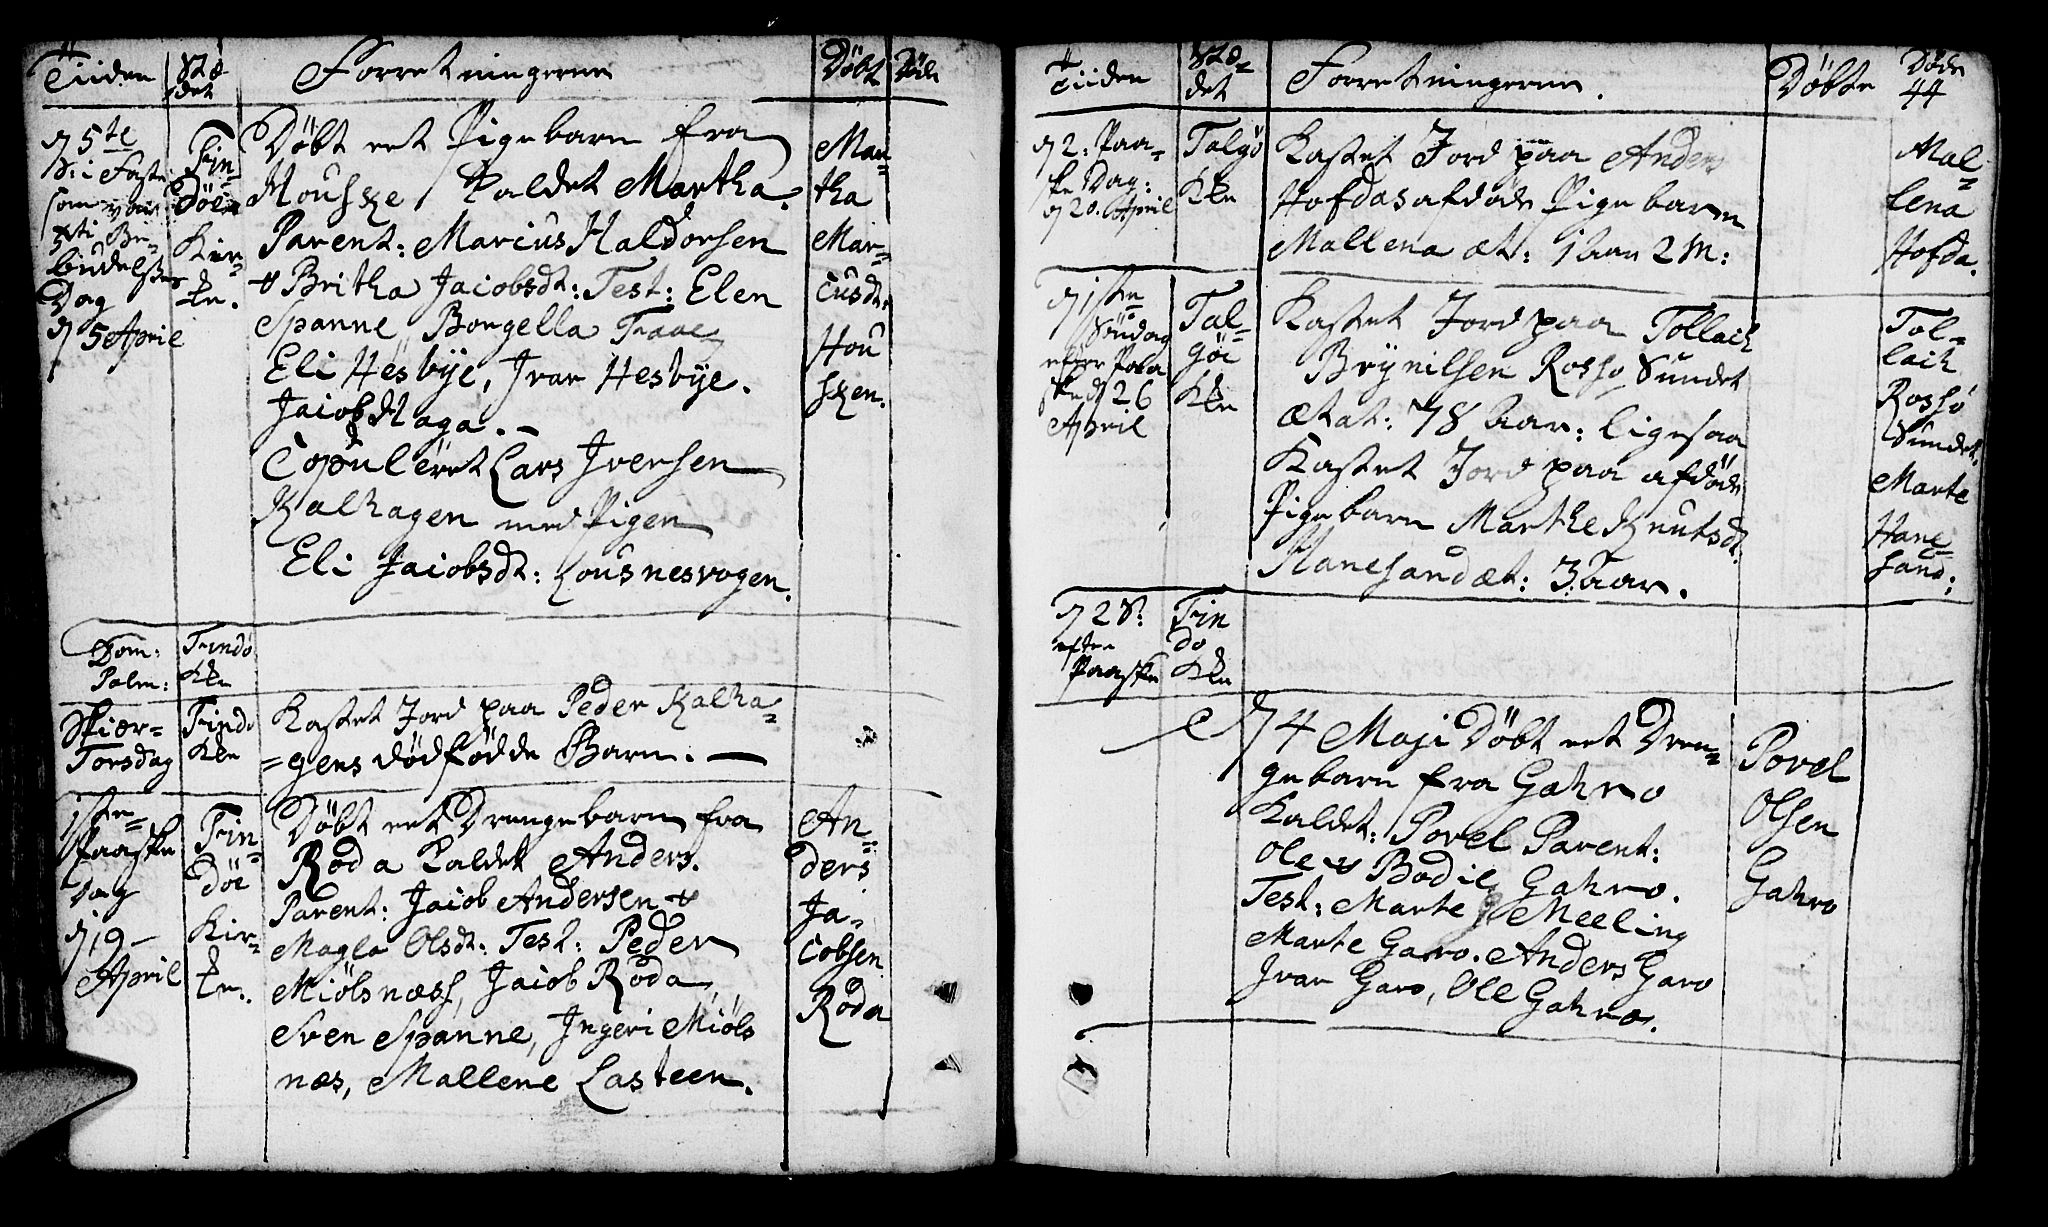 Tiiden
Stædet
Forretningerne
Døbt
Døde
d 5te
S: i Faste
som var
Bebudelses
Dag
d 5 April
Findöe Kirke.
Döbt eet Pigebarn fra
Houske Kaldet Martha.
Parent: Marcus Haldorsen
& Britha Jacobsdt: Test: Elen
Spanne, Bongella
Eli Hesbÿe, Ivar Hesbÿe.
Jacob Haga. –
Copuleret Lars Iversen
Kalhagen med Pigen
Eli Jacobsdt: Lousnesvogen.
Martha
Marcusdt:
Housken.
Dom:
Palm:
Findö
Kke
Skiær=
Torsdag
Findö
Kke
Kastet Jord paa Peder Kalha=
=gens dödfödde Barn. —
1ste
Paaske
Dag
d 19
April
Fin=
döe
Kir=
ke.
Döbt eet Drengebarn fra
Röda Kaldet Anders.
Parent: Jacob Andersen &
Magla Olsdt: Test: Peder
Miölsnæss, Jacob Röda
Sven Spanne, Ingeri Miöls
næs, Mallene Lasteen.
An=
ders
Ja=
cobsen
Röda
Tiiden
Stædet
Forretningerne.
Döbte
Döde
44
d 2: Paa=
ske Dag:
d 20. April
Talgö
Kke
Kastet Jord paa Anders
Hofdas afdöde Pigebarn
Mallena æt: 1 Aar 2 M:
Mal=
lena
Hofda.
d 1ste
Söndag
efter Paa
ske d 26
April
Tal=
göe
Kke
Kastet Jord paa Tollach
Brÿnilsen Rossö Sundet
Ætat: 78 Aar: ligesaa
Kastet Jord paa afdöde
Pigebarn Marthe Knutsdt:
Hanesand æt: 3 Aar.
Tol=
lach
Rossö
Sundet.
Marte
Hane=
sand:
d 2 S:
efter
Paaske
Fin
dö
Kke
d 4 Maji Döbt eet Dren=
gebarn fra Gahro
Kaldet: Povel Parent:
Ole & Bodil Gahro.
Test: Marte Meeling
Marte Garo. Anders Garo
Ivar Garo, Ole Gahro.
Povel
Olsen
Gahro